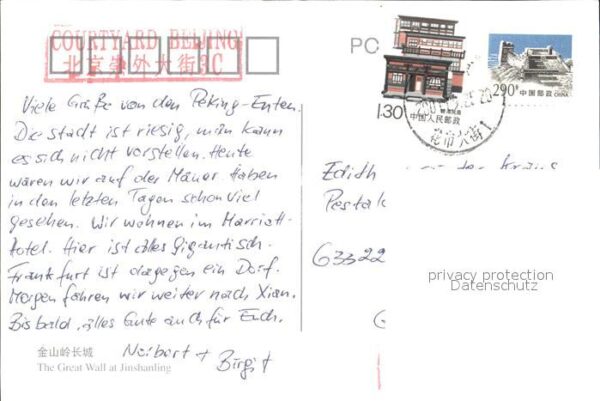 COURTYARD BEIJING
北京崇外大街3C
PC
.30
中国人民邮政
290
中国邮政 CHINA
花市大街
Viele Grüße von den Peking-Enten.
Die Stadt ist riesig, man kann
es sich nicht vorstellen. Heute
waren wir auf der Mauer. Haben
in den letzten Tagen schon viel
gesehen. Wir wohnen im Marriott-
Hotel. Hier ist alles gigantisch.
Frankfurt ist dagegen ein Dorf.
Morgen fahren wir weiter nach Xian.
Bis bald, alles Gute auch für Euch.
Norbert + Birgit
Edith
63322
privacy protection
Datenschutz
金山岭长城
The Great Wall at Jinshanling